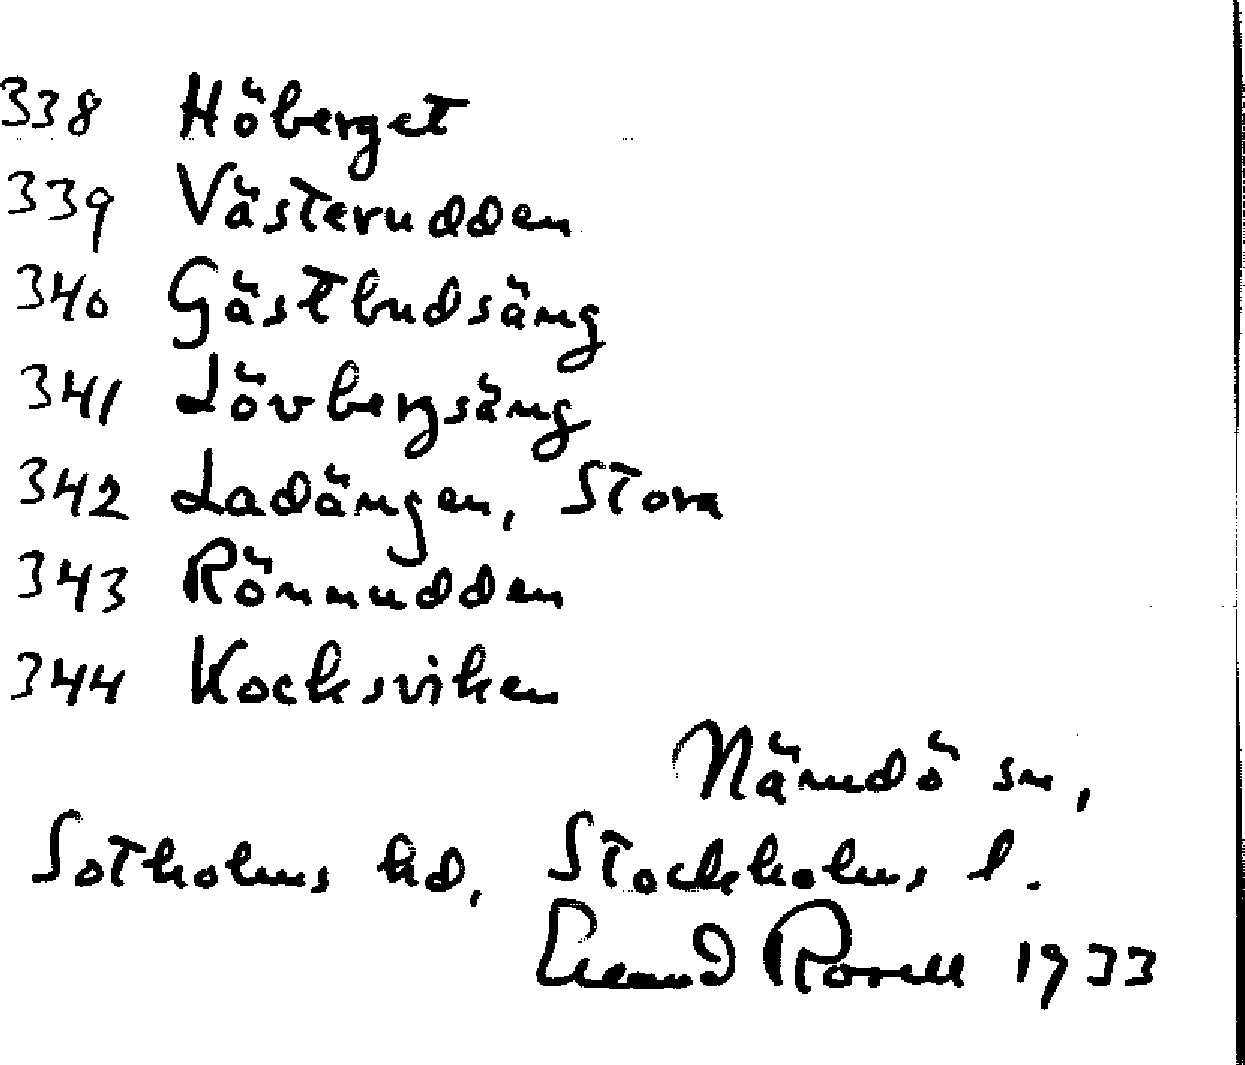 338 Höberget
339 Västerudden
340 Gästbudsäng
341 Lövbergsäng
342 Ladängen, Stora
343 Rönnudden
344 Kocksviken
Nämdö sn,
Sotholms hd, Stockholms l.
1933